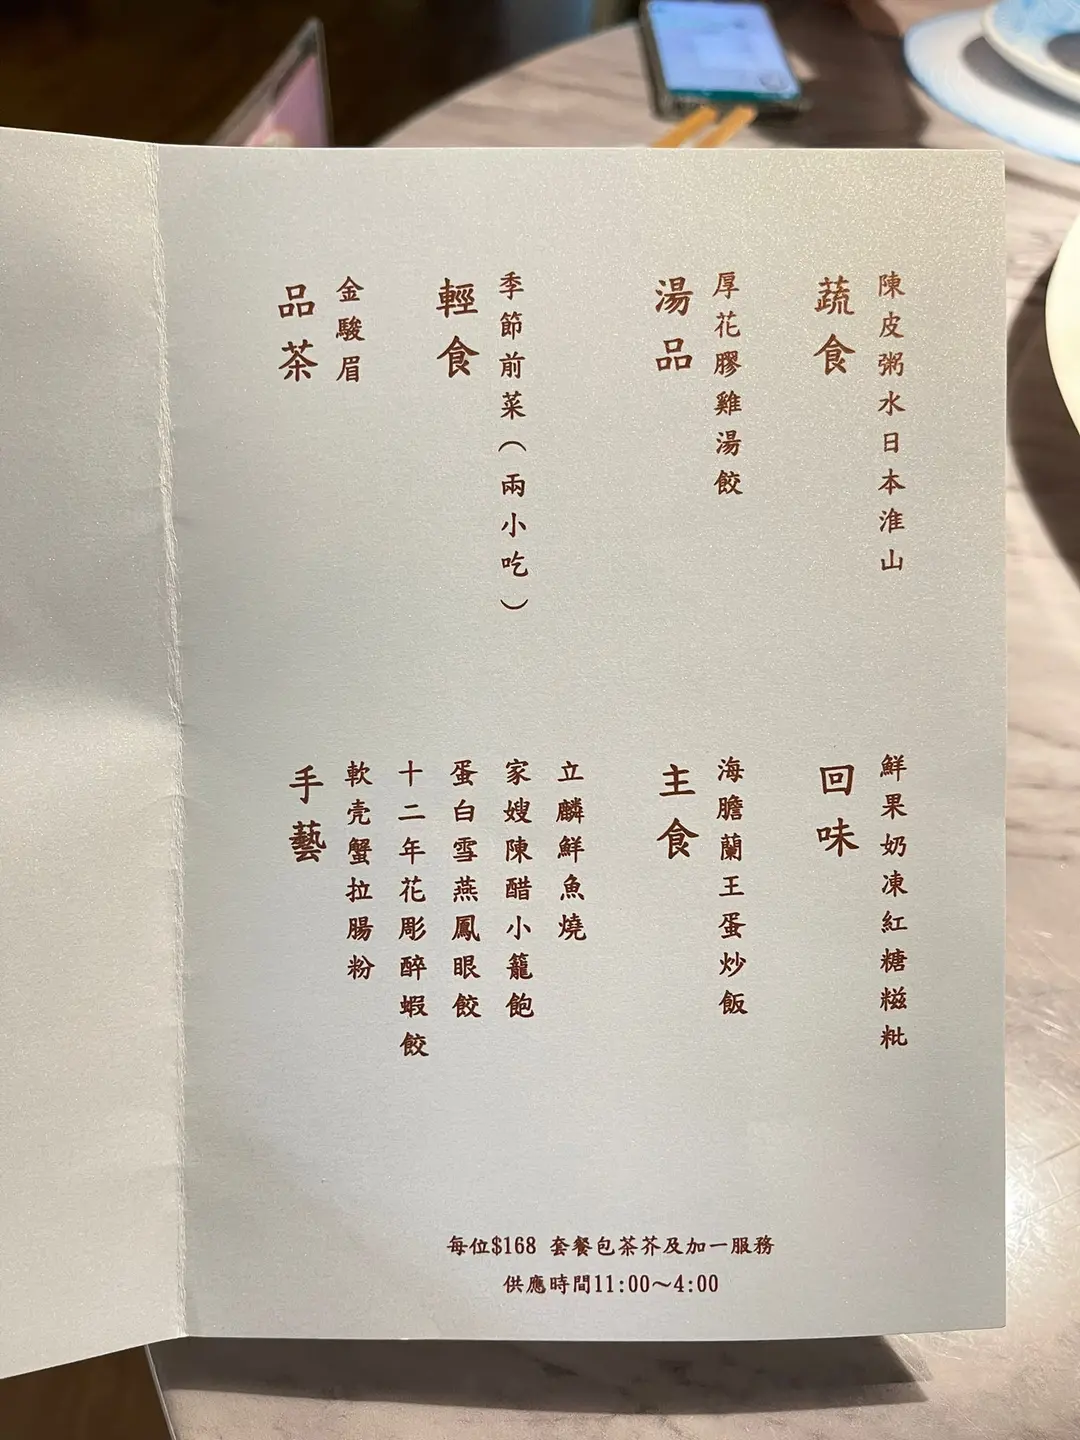 品茶
金駿眉
輕食
季節前菜（兩小吃）
湯品
厚花膠雞湯餃
蔬食
陳皮粥水日本淮山
手藝
軟壳蟹拉腸粉
十二年花彫醉蝦餃
蛋白雪燕鳳眼餃
家嫂陳醋小籠飽
立麟鮮魚燒
主食
海膽蘭王蛋炒飯
回味
鮮果奶凍紅糖糍粃
每位$168 套餐包茶芥及加一服務
供應時間11:00～4:00